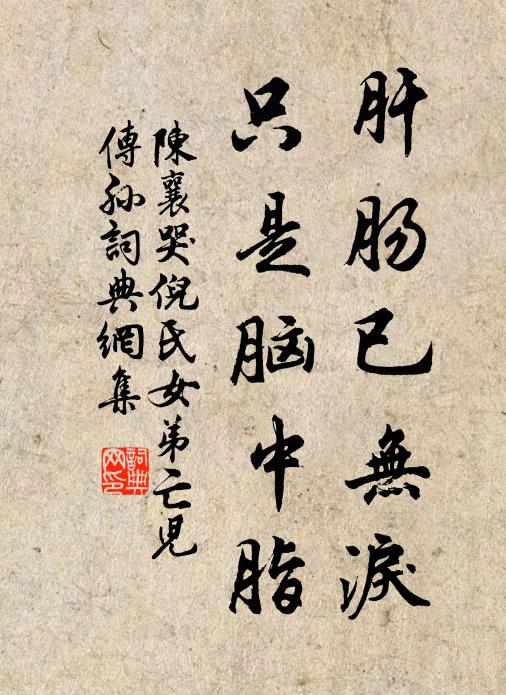 肝肠已無淚
只是脑中脂
陳襄哭倪氏女弟亡兒
傅孙詞典網集
詞典网印